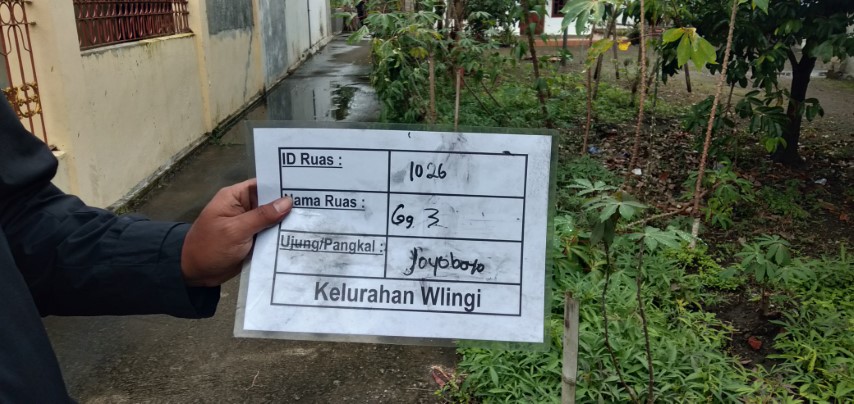 ID Ruas : 1026
Nama Ruas : Gg. 3
Ujung/Pangkal : Joyoboyo
Kelurahan Wlingi